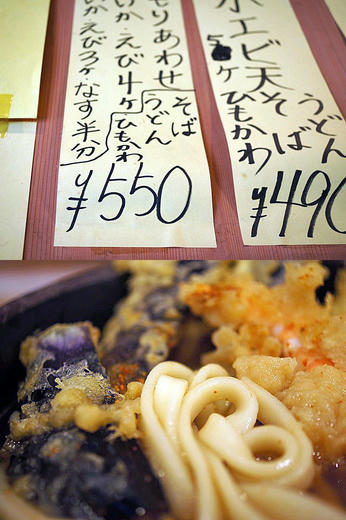 小エビ天そば
うどん
5ヶ ひもかわ
¥490
もりあわせ
そば
うどん
ひもかわ
いか・えび4ヶ
いか・えび3ヶ・なす半分
¥550